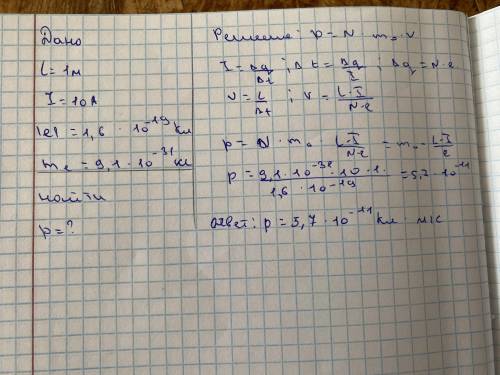 Дано
L = 1м
I = 10А
|e| = 1,6 · 10⁻¹⁹ Кл
mₑ = 9,1 · 10⁻³¹ кг
найти
p = ?
Решение: p = N · m₀ · v
I = Δq/Δt ; Δt = Δq/I ; Δq = N · e
v = L/Δt ; v = L · I/N · e
p = N · m₀ · L · I/N · e = m₀ · L · I/e
p = 9,1 · 10⁻³¹ · 10 · 1/1,6 · 10⁻¹⁹ = 5,7 · 10⁻¹¹
Ответ: p = 5,7 · 10⁻¹¹ кг м/с